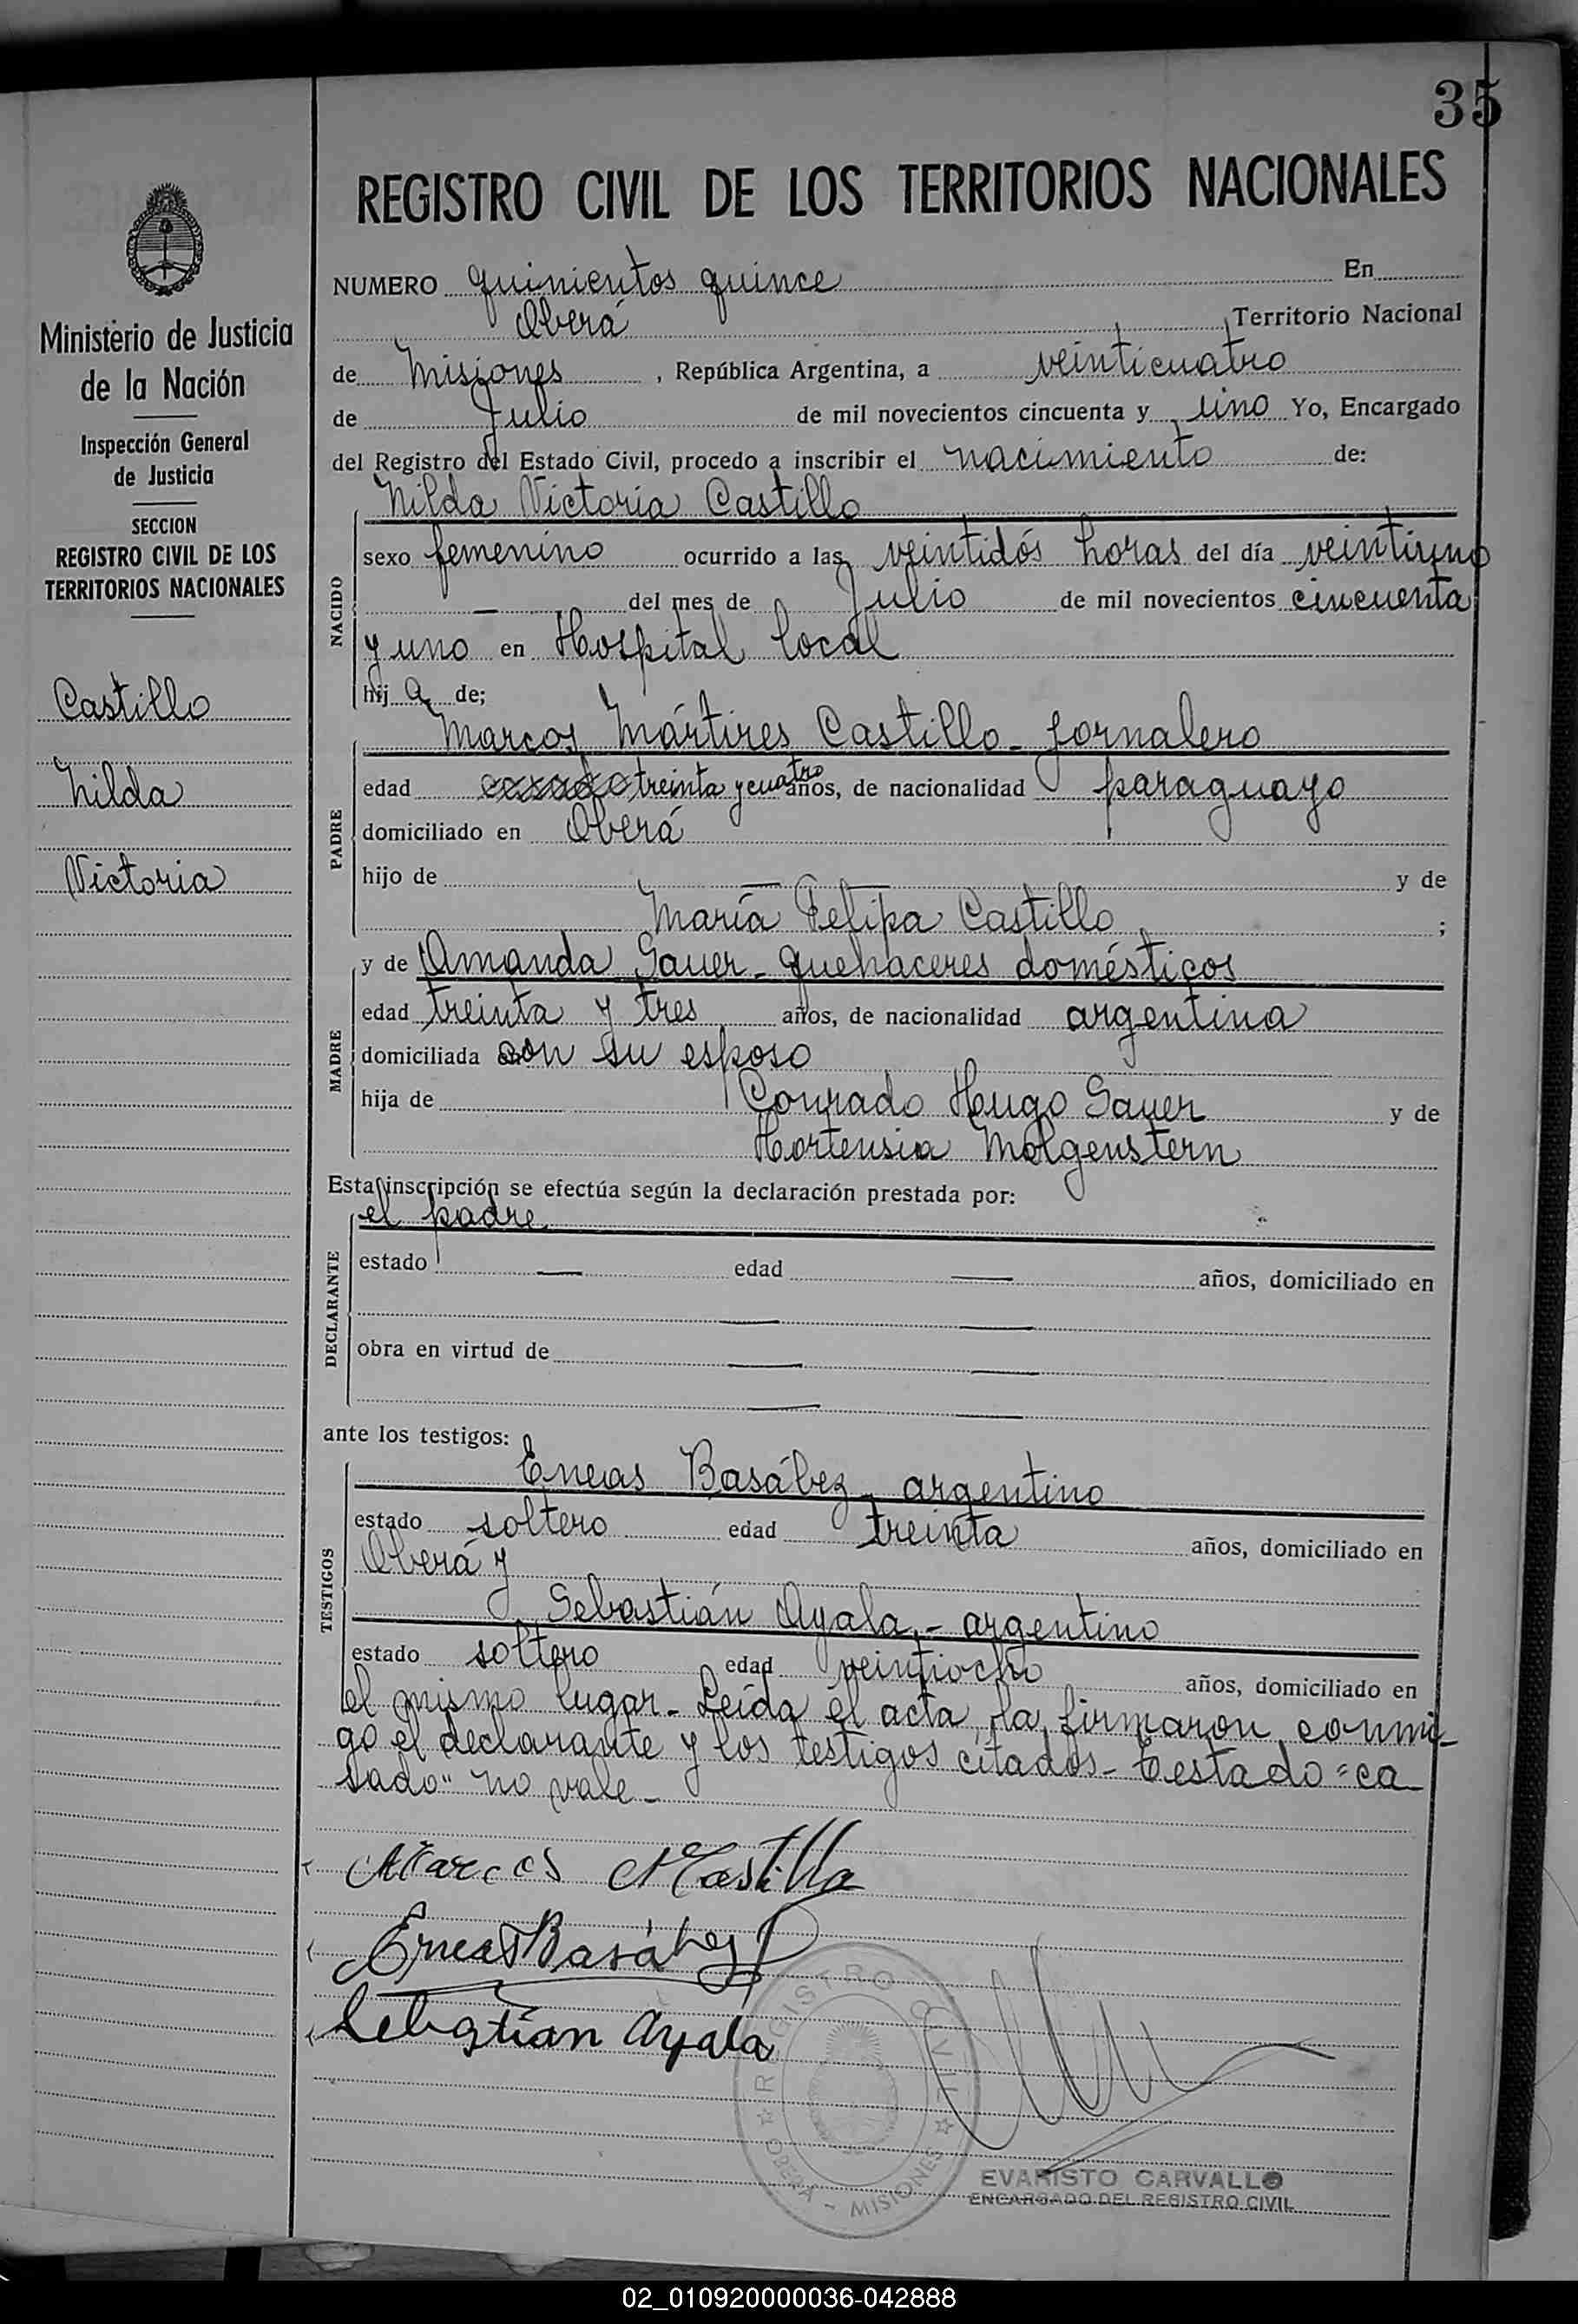 35
REGISTRO CIVIL DE LOS TERRITORIOS NACIONALES
Ministerio de Justicia
de la Nación
Inspección General
de Justicia
SECCION
REGISTRO CIVIL DE LOS
TERRITORIOS NACIONALES
Castillo
Nilda
Victoria
NUMERO quinientos quince En
Oberá Territorio Nacional
de Misiones, República Argentina, a veinticuatro
de Julio de mil novecientos cincuenta y uno Yo, Encargado
del Registro del Estado Civil, procedo a inscribir el nacimiento de:
Nilda Victoria Castillo
NACIDO
sexo femenino ocurrido a las veintidós horas del día veintiuno
— del mes de Julio de mil novecientos cincuenta
y uno en Hospital local
hij a de;
Marcos Mártires Castillo - jornalero
PADRE
edad casado treinta y cuatro años, de nacionalidad paraguayo
domiciliado en Oberá
hijo de — y de
María Felipa Castillo ;
y de Amanda Sauer - quehaceres domésticos
MADRE
edad treinta y tres años, de nacionalidad argentina
domiciliada con su esposo
hija de Conrado Hugo Sauer y de
Hortensia Molgenstern
Esta inscripción se efectúa según la declaración prestada por:
el padre
DECLARANTE
estado — edad — años, domiciliado en
— —
obra en virtud de — —
— —
ante los testigos:
Eneas Basábez - argentino
TESTIGOS
estado soltero edad treinta años, domiciliado en
Oberá y
Sebastián Ayala - argentino
estado soltero edad veintiocho años, domiciliado en
el mismo lugar - Leída el acta, la firmaron conmi-
go el declarante y los testigos citados - Testado "ca
sado" no vale -
Marcos M Castillo
Eneas Basábez
Sebastian Ayala
REGISTRO CIVIL
OBERA - MISIONES
EVARISTO CARVALLO
ENCARGADO DEL REGISTRO CIVIL
02_010920000036-042888